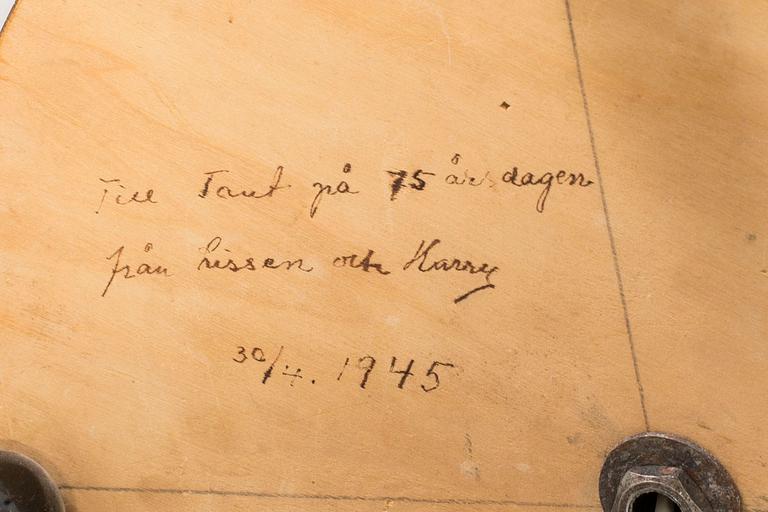 Till Tant på 75 årsdagen
från Lissen och Harry
30/4. 1945